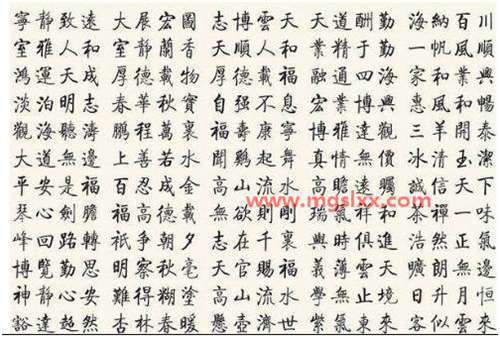 寧靜致遠 大展宏圖 志博雲天 天道酬勤 海納百川
室雅人和 室靜蘭香 順人和 業精于勤 一帆風順
鴻運天成 厚德載物 厚德載福 融通四海 家和業興
淡泊明志 春華秋實 自强不息 宏業博興 惠風和暢
觀海聽濤 鵬程萬裏 福壽康寧 博雅達觀 三羊開泰
大道無邊 上善若水 聞鷄起舞 真情無價 冰清玉潔
平安是福 百忍成金 高山流水 高瞻遠矚 誠信天下
琴心劍膽 福高德載 無欲則剛 瑞氣祥和 茶禪一味
www.mgslxx.com
峰回路轉 祇爭朝夕 志在千裏 與時俱進 浩然正氣
博覽勤思 明察秋毫 天官賜福 義薄雲天 曠朗無邊
神靜心安 難得糊塗 高山流水 學無止境 日升月恒
豁達超然 杏林春暖 懸壺濟世 紫氣東來 客似雲來